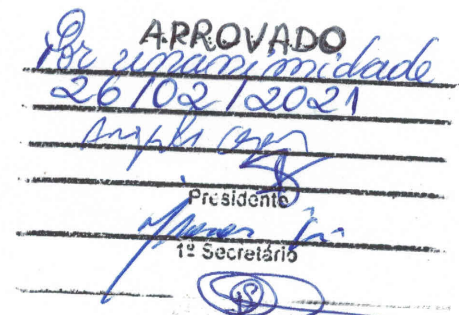 APROVADO
Por unanimidade
26/02/2021
Presidente
1º Secretário